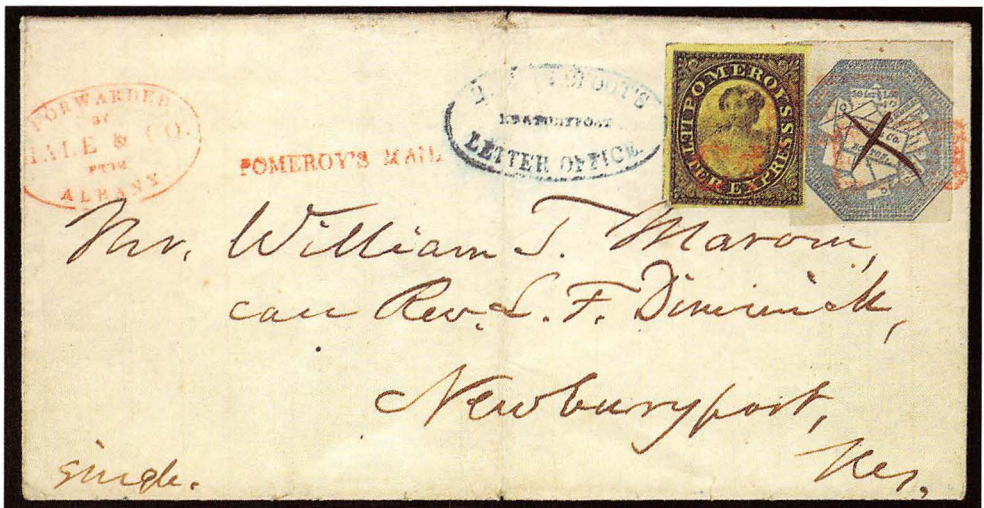 FORWARDED
BY
HALE & CO.
FROM
ALBANY
POMEROY'S MAIL
NEWBURYPORT
LETTER OFFICE
POMEROY'S
LETTER EXPRESS
Mr. William T.
care Rev. L. F. Dimmick,
Newburyport,
Single.